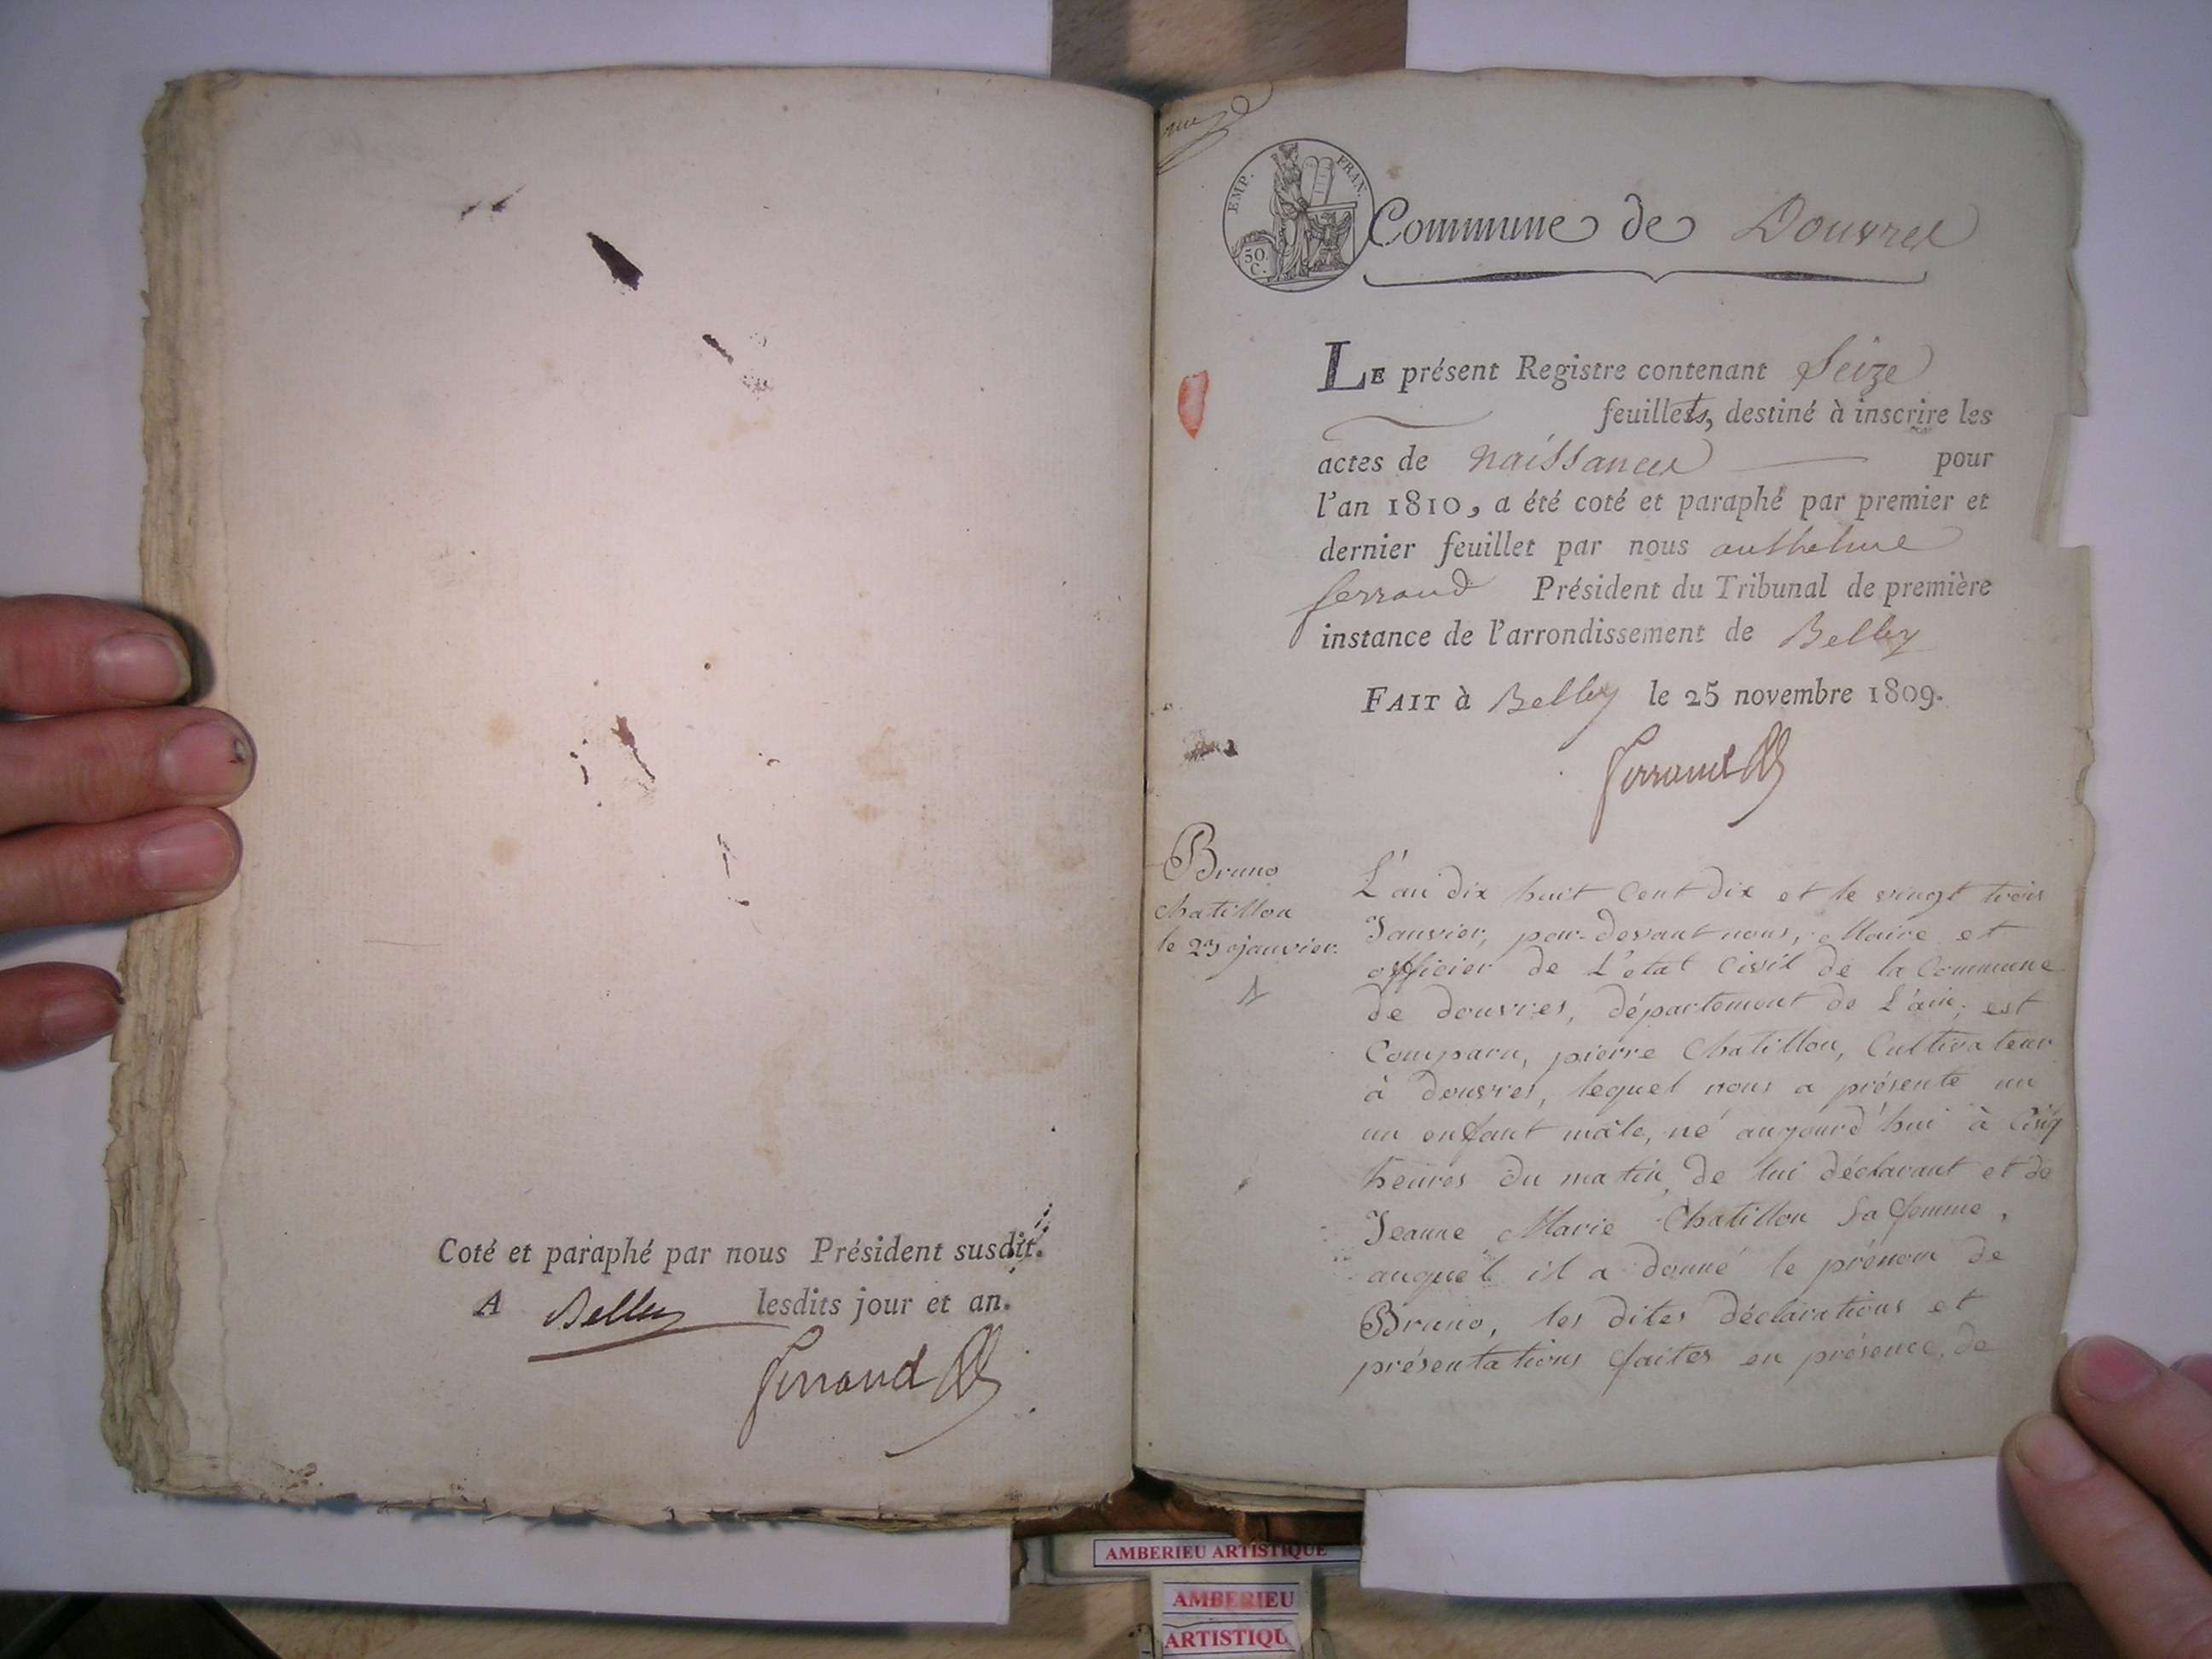 Coté et paraphé par nous Président susdit.
A Belley lesdits jour et an.
Ferrand
EMP. FRAN.
50.
C.
Commune de Douvres
LE présent Registre contenant Seize
feuillets, destiné à inscrire les
actes de naissances pour
l'an 1810, a été coté et paraphé par premier et
dernier feuillet par nous anthelme
ferrand Président du Tribunal de première
instance de l'arrondissement de Belley
FAIT à Belley le 25 novembre 1809.
Ferrand
Bruno
chatillon
le 23 janvier.
1
L'an dix huit Cent dix et le vingt trois
Janvier, par-devant nous, Maire et
officier de L'etat Civil de la Commune
de douvres, département de L'ain, est
Comparu, pierre Chatillon, Cultivateur
à douvres, lequel nous a présenté un
un enfant mâle, né aujourd'hui à Cinq
heures du matin, de lui déclarant et de
Jeanne Marie Chatillon Sa femme,
auquel il a donné le prénom de
Bruno, les dites déclarations et
présentations faites en présence, de
AMBERIEU ARTISTIQUE
AMBERIEU
ARTISTIQU